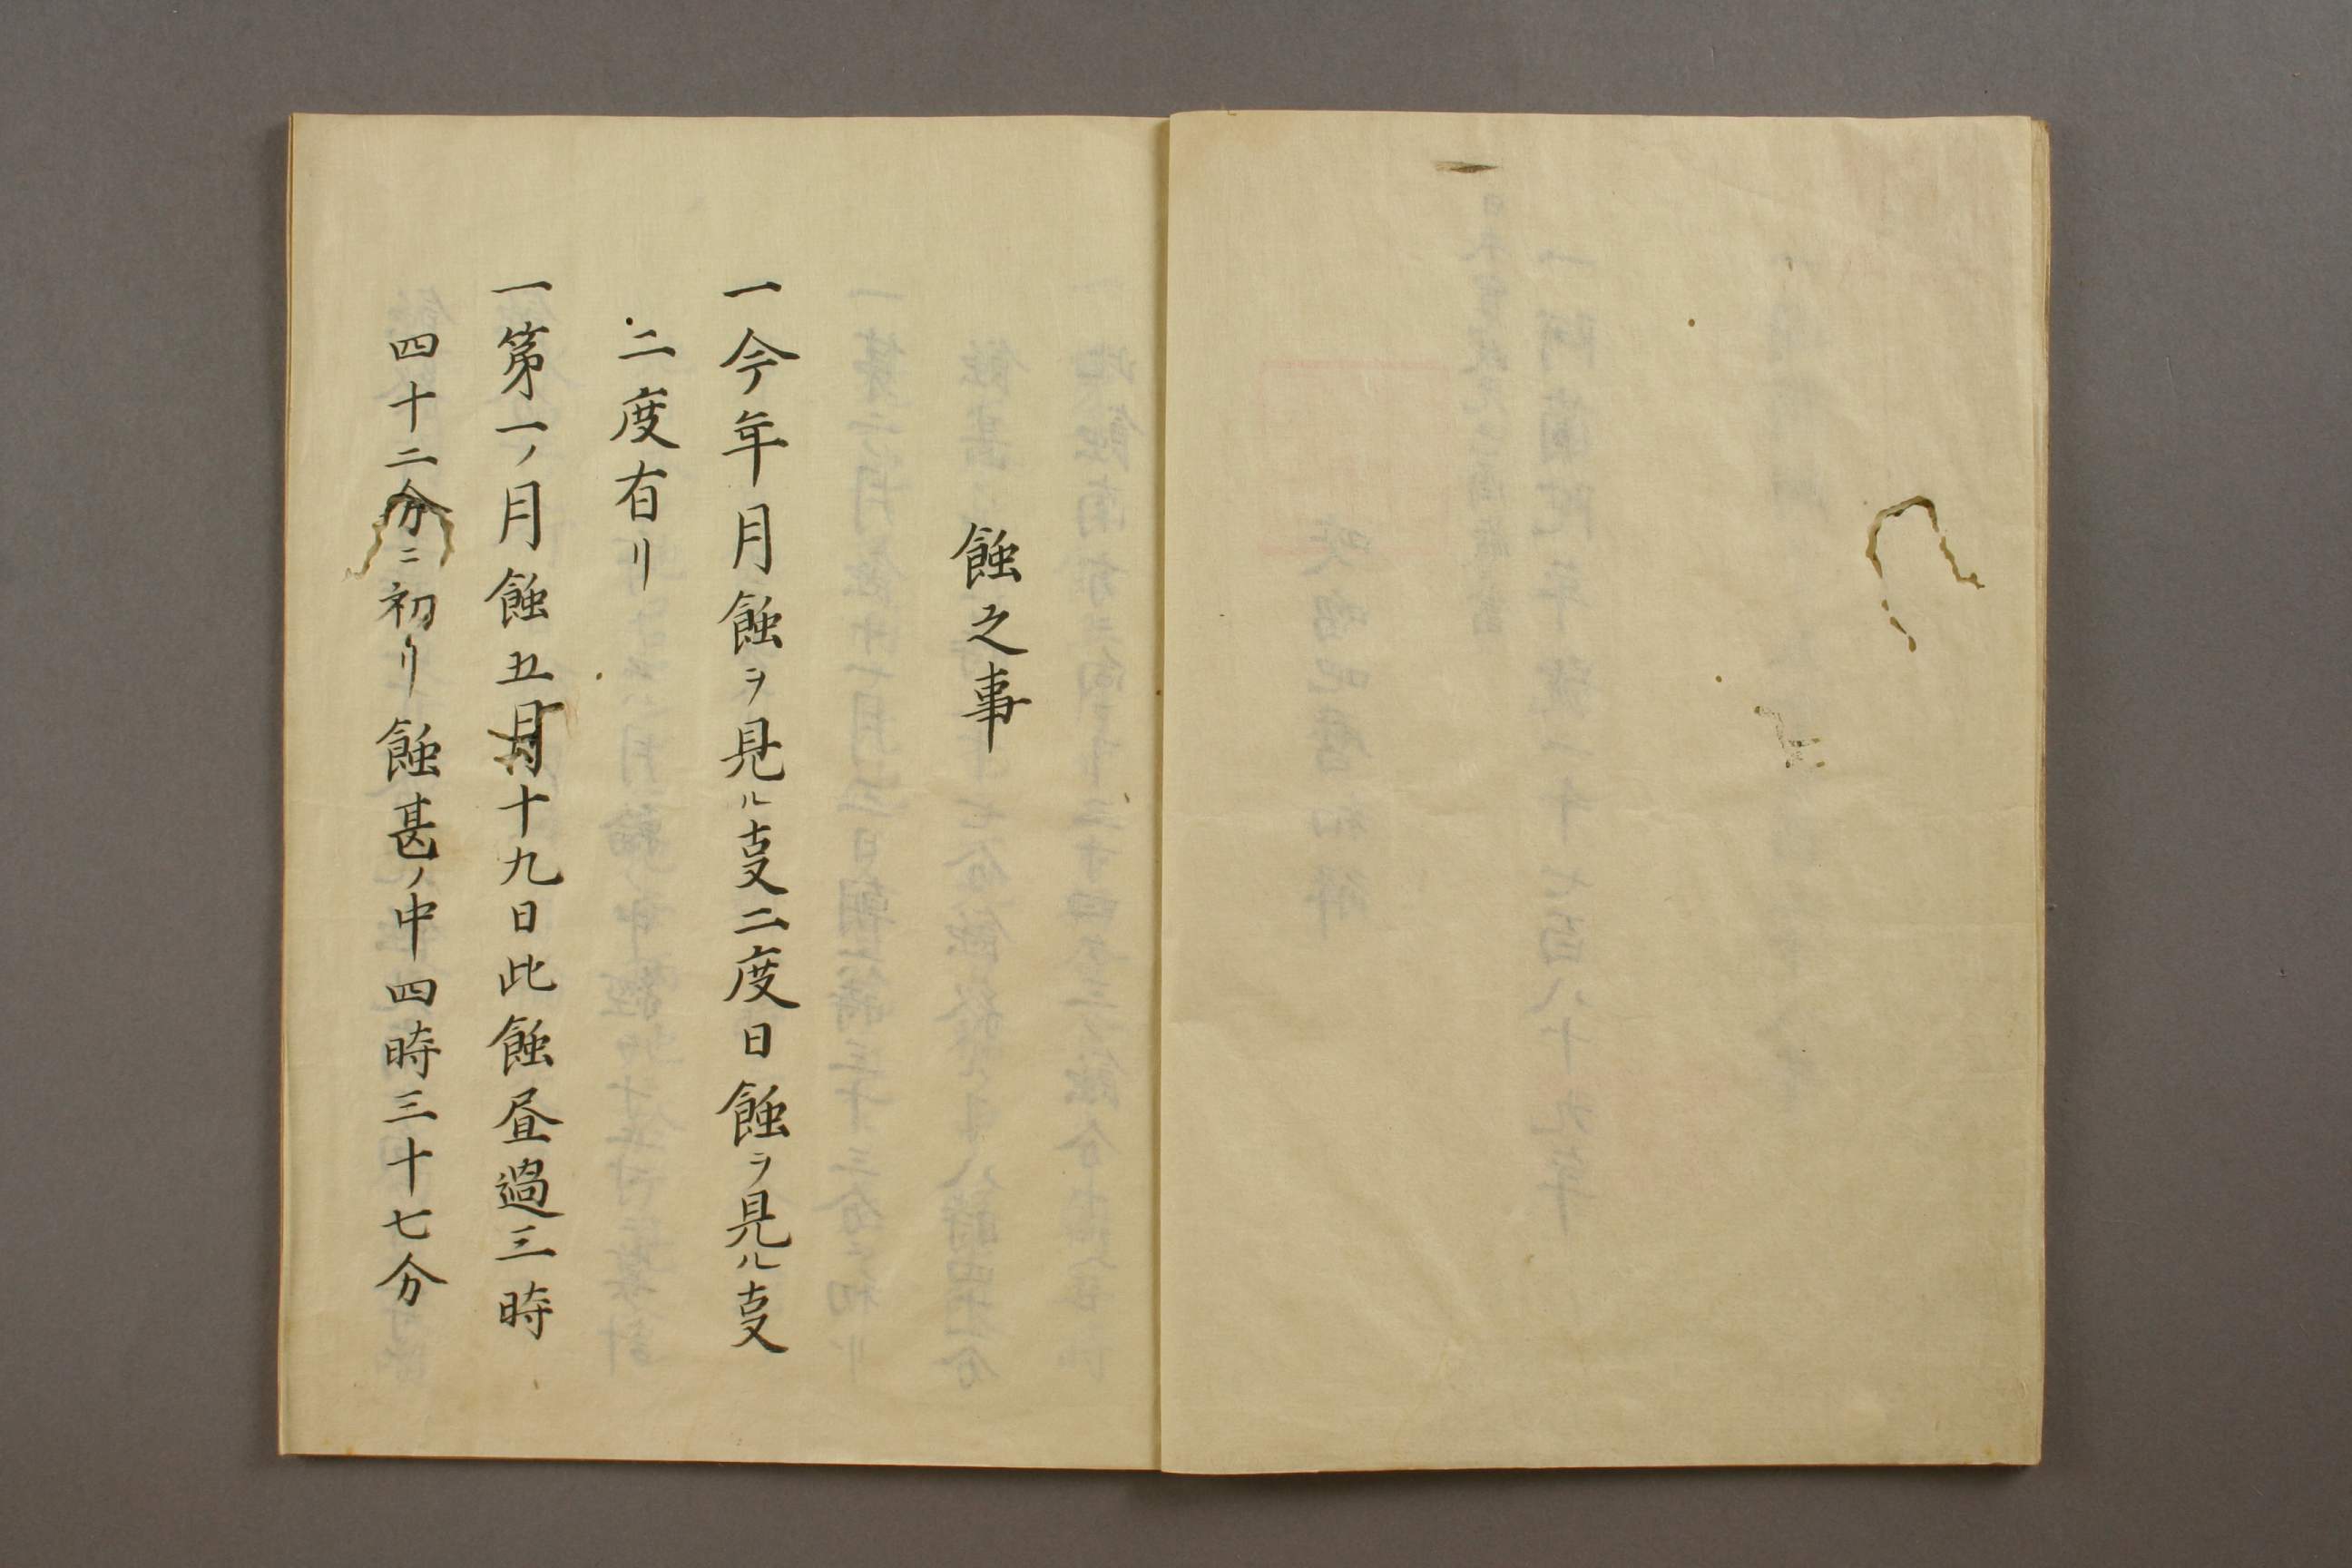 蝕之事
一今年月蝕ヲ見ル叓二度日蝕ヲ見ル叓
二度有リ
一第一ノ月蝕五月十九日此蝕昼過三時
四十二分ニ初リ蝕甚ノ中四時三十七分